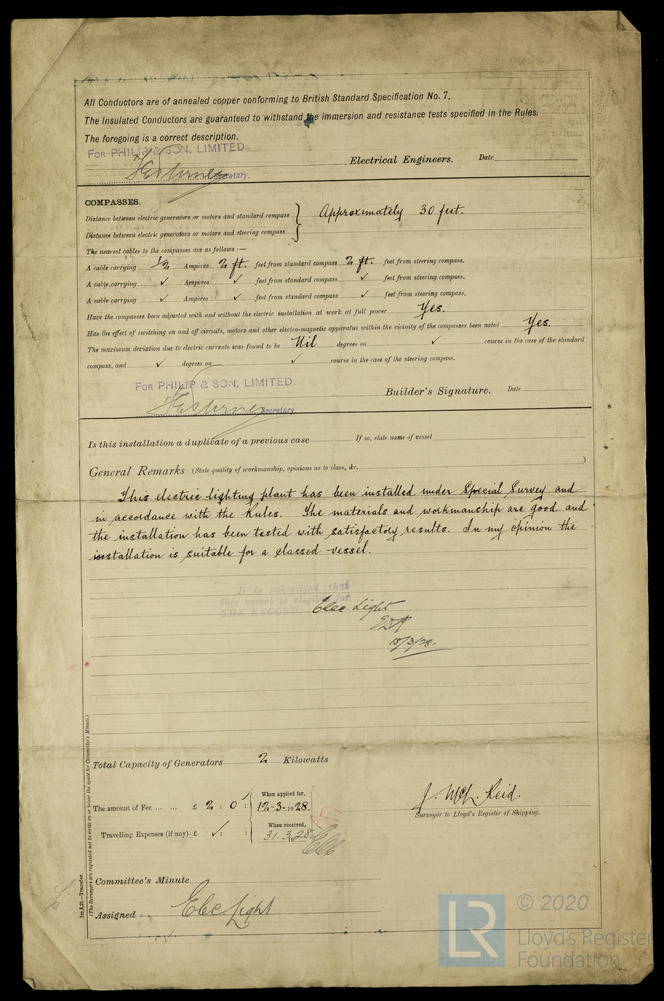 All Conductors are of annealed copper conforming to British Standard Specification No. 7.
The Insulated Conductors are guaranteed to withstand the immersion and resistance tests specified in the Rules.
The foregoing is a correct description.
FOR PHILIP & SON, LIMITED.
Secretary. Electrical Engineers. Date
COMPASSES.
Distance between electric generators or motors and standard compass Approximately 30 feet.
Distance between electric generators or motors and steering compass
The nearest cables to the compasses are as follows :—
A cable carrying 1/2 Amperes 2 ft. feet from standard compass 2 ft. feet from steering compass.
A cable carrying ✓ Amperes ✓ feet from standard compass ✓ feet from steering compass.
A cable carrying ✓ Amperes ✓ feet from standard compass ✓ feet from steering compass.
Have the compasses been adjusted with and without the electric installation at work at full power Yes.
Has the effect of switching on and off circuits, motors and other electro-magnetic apparatus within the vicinity of the compasses been noted Yes.
The maximum deviation due to electric currents was found to be Nil degrees on ✓ course in the case of the standard
compass, and ✓ degrees on ✓ course in the case of the steering compass.
FOR PHILIP & SON, LIMITED.
Secretary. Builder's Signature. Date
Is this installation a duplicate of a previous case If so, state name of vessel
General Remarks (State quality of workmanship, opinions as to class, &c.
This electric lighting plant has been installed under Special Survey and
in accordance with the Rules. The materials and workmanship are good and
the installation has been tested with satisfactory results. In my opinion the
installation is suitable for a classed vessel.
It is submitted that
this vessel is eligible for
THE RECORD. Elec Light
15/3/28.
Total Capacity of Generators 2 Kilowatts
The amount of Fee ... ... £ 2 : 0 : When applied for, 12-3-1928.
J. McL. Reid.
Surveyor to Lloyd's Register of Shipping.
Travelling Expenses (if any) £ ✓ : When received, 31.3.1928
Committee's Minute
Assigned Elec Light
1m,8,25.—Transfer.
(The Surveyors are requested not to write on or below the space for Committee's Minute.)
LR © 2020
Lloyd's Register
Foundation